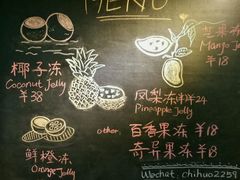 MENU
椰子冻
Coconut Jelly
¥38
芒果冻
Mango Jelly
¥18
凤梨冻 ¥24
Pineapple Jelly
other
百香果冻 ¥18
奇异果冻 ¥18
鲜橙冻
Orange Jelly
Wechat: chihuo2259